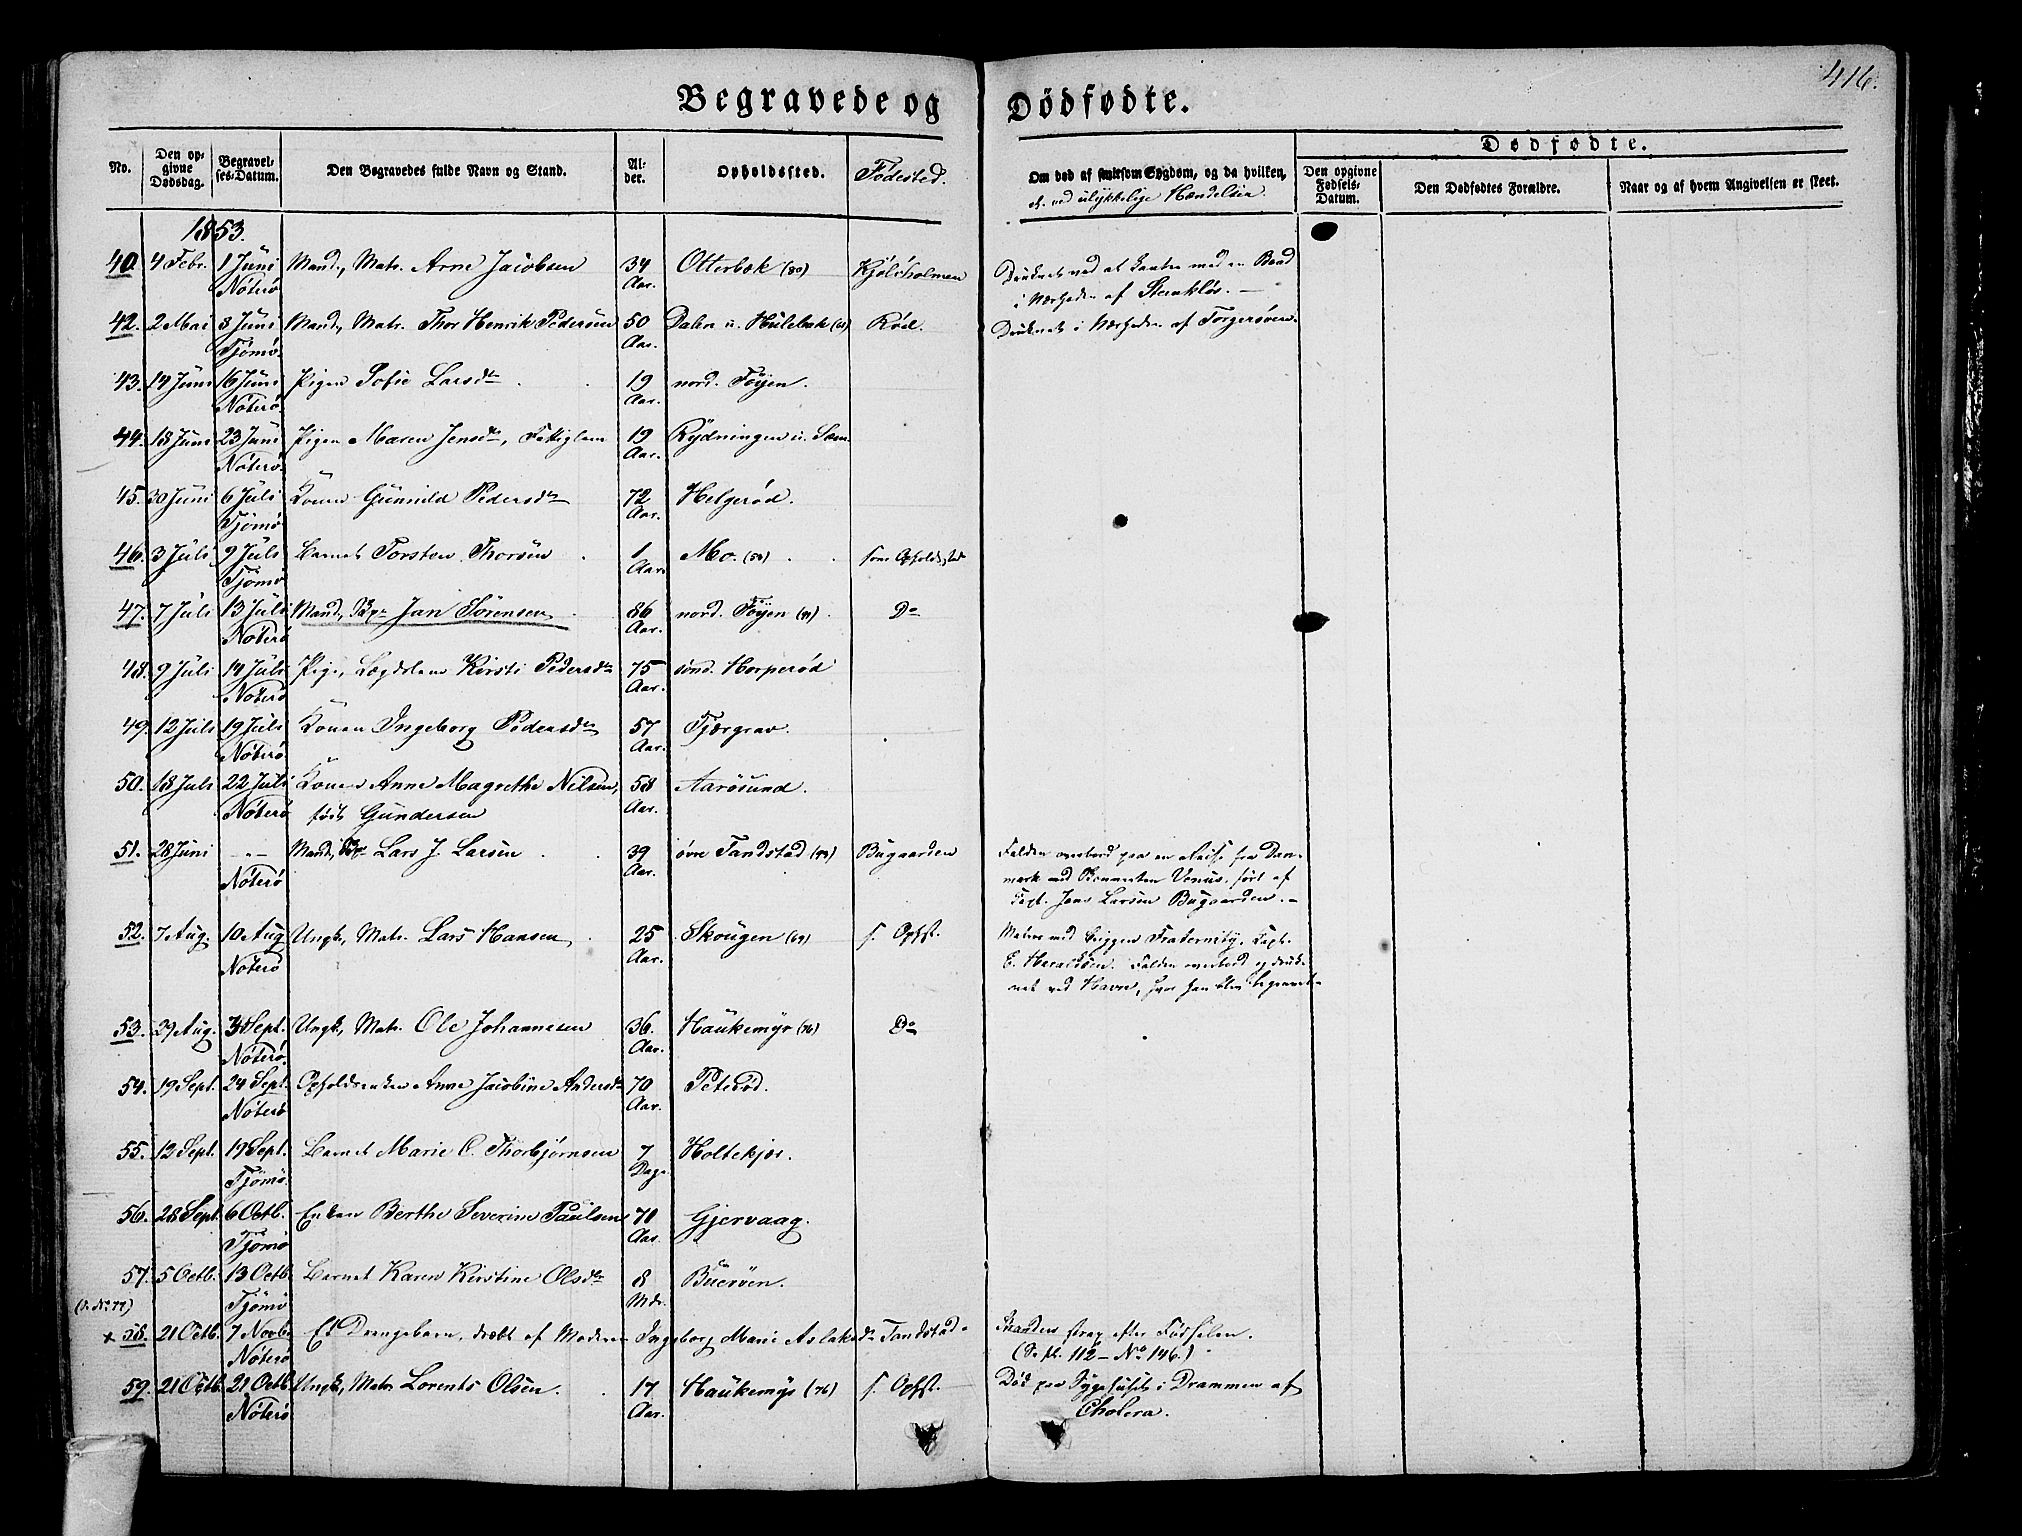 416.
Begravede og Dødfødte.
No. Den opgivne Dødsdag. Begravelses-Datum. Den Begravedes fulde Navn og Stand. Alder. Opholdssted. Fødested. Om død af smitsom Sygdom, og da hvilken, el. ved ulykkelige Hændelser. Dødfødte. Den opgivne Fødsels-Datum. Den Dødfødtes Forældre. Naar og af hvem Angivelsen er skeet.
1853.
40. 4 Febr. 1 Juni Mand, Matr. Arne Jacobsen 34 Otterbek (80) Kjøleholmen Druknet ved at kantre med en Baad
Nøterø Aar. i Nærheden af Stenkløs.
42. 2 Mai 8 Juni Mand, Matr. Thor Henrik Pedersen 50 Dalen u. Hulebak Rød. Druknet i Nærheden af Torgersøen.
Tjømø. Aar.
43. 14 Juni 16 Juni Pigen Sofie Larsdtr 19 nord. Føyen.
Nøterø. Aar.
44. 18 Juni 23 Juni Pigen Maren Jensdtr, Fattiglem 19 Rydningen u. Sem.
Nøterø. Aar.
45. 30 Juni 6 Juli Konen Gunnild Pedersdtr 72 Helgerød.
Tjømø Aar.
46. 3 Juli 9 Juli Barnet Torsten Thorsen 1 Mo. (58) som Opholdssted
Tjømø Aar.
47. 7 Juli 13 Juli Mand, Jan Sørensen 86 nord. Føyen (91) Do
Nøterø Aar.
48. 9 Juli 14 Juli Pige, Lægdslem Kirsti Pedersdtr 75 sønd. Horperød
Nøterø Aar.
49. 12 Juli 19 Juli Konen Ingeborg Pedersdtr 57 Fjærgrav.
Nøterø Aar.
50. 18 Juli 22 Juli Konen Anne Magrethe Nilsen, 58 Aarøsund.
Nøterø født Gundersen Aar.
51. 28 Juni -"- Mand, Lars J. Larsen 39 øvre Tandstad (99) Bugaarden Falden overbord paa en Reise fra Dan-
Nøterø Aar. mark med Skonnerten Venus, ført af
Capt. Jens Larsen Bugaarden.
52. 7 Aug. 10 Aug Ungk, Matr. Lars Hansen 25 Skougen (69) s. Opst. Matros med Briggen Fraternity, Capt.
Nøterø Aar. E. Haraldsen. Falden overbord og druk-
net ved Havre, hvor han blev begravet.
53. 29 Aug. 3 Sept. Ungk, Matr. Ole Johannesen 36. Haukemyr (76) Do
Nøterø. Aar.
54. 19 Sept. 24 Sept. Opholdsenken Anne Jacobine Andersdtr 70 Peterød.
Nøterø Aar.
55. 12 Sept. 19 Sept. Barnet Marie C. Thorbjørnsen 7 Holtekjær.
Tjømø. Dage
56. 28 Sept. 6 Octb. Enken Berthe Severine Paulsen 70 Gjervaag.
Tjømø Aar.
57. 5 Octb. 13 Octb. Barnet Karen Kirstine Olsdtr 8 Buerøen.
Tjømø Mdr.
(S. No 77)
x 58. 21 Octb. 7 Novb. Et Drengebarn, dræbt af Moderen Ingeborg Marie Aslaksdtr Tandstad Moderen strax efter Fødselen.
Nøterø (Se fl. 112 - No 146.)
59. 21 Octb. 21 Octb. Ungk, Matr. Lorents Olsen. 17 Haukemyr (76) s. Opst. Død paa Sygehuset i Drammen af
Nøterø Aar. Cholera.